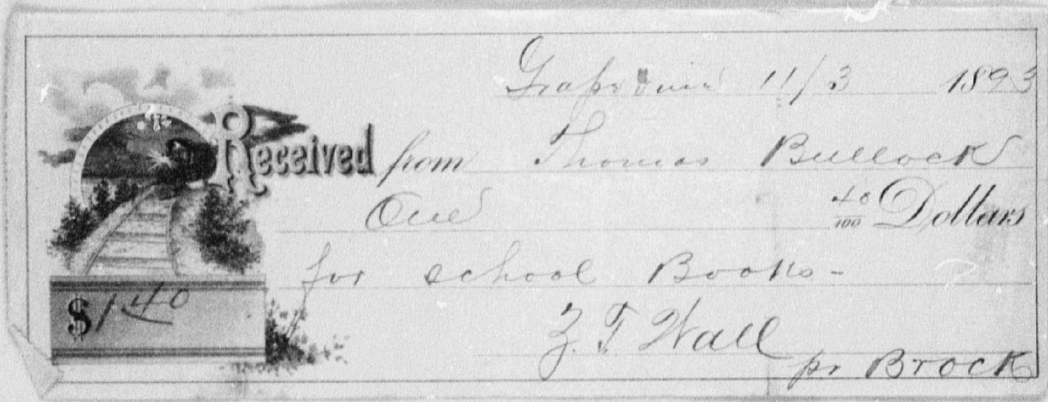 Grapevine 11/3 1893
Received from Thomas Bullock
One 40/100 Dollars
for school Books-
$1.40
Z. T. Wall
pr Brock